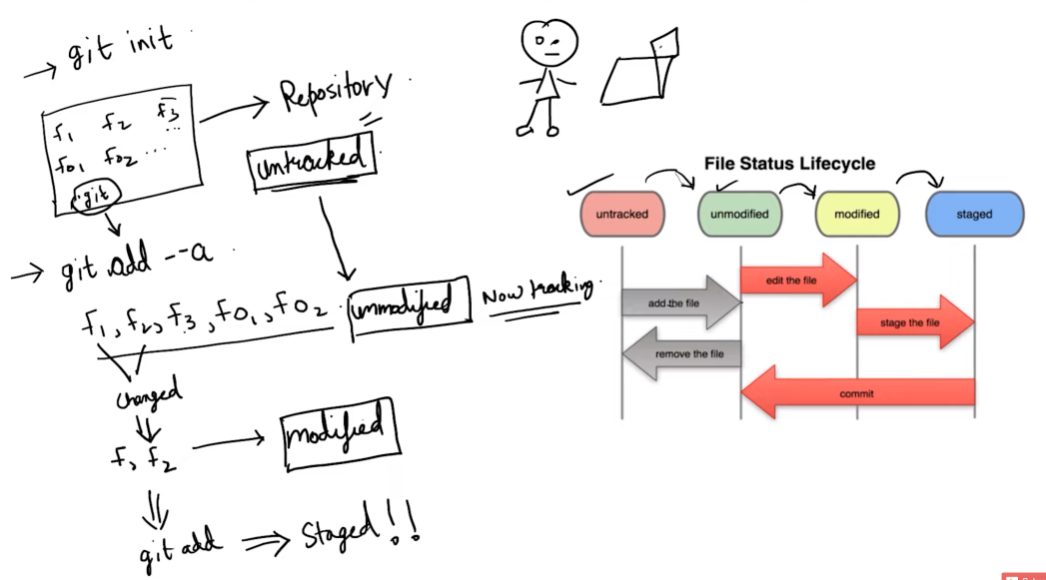 → git init
f1 f2 f3 ...
fo1 fo2 ...
.git
→ Repository.
untracked
→ git add --a
f1, f2, f3, fo1, fo2
unmodified
Now tracking.
changed
f1, f2
modified
git add ⇒ Staged!!
File Status Lifecycle
untracked unmodified modified staged
edit the file
add the file
stage the file
remove the file
commit